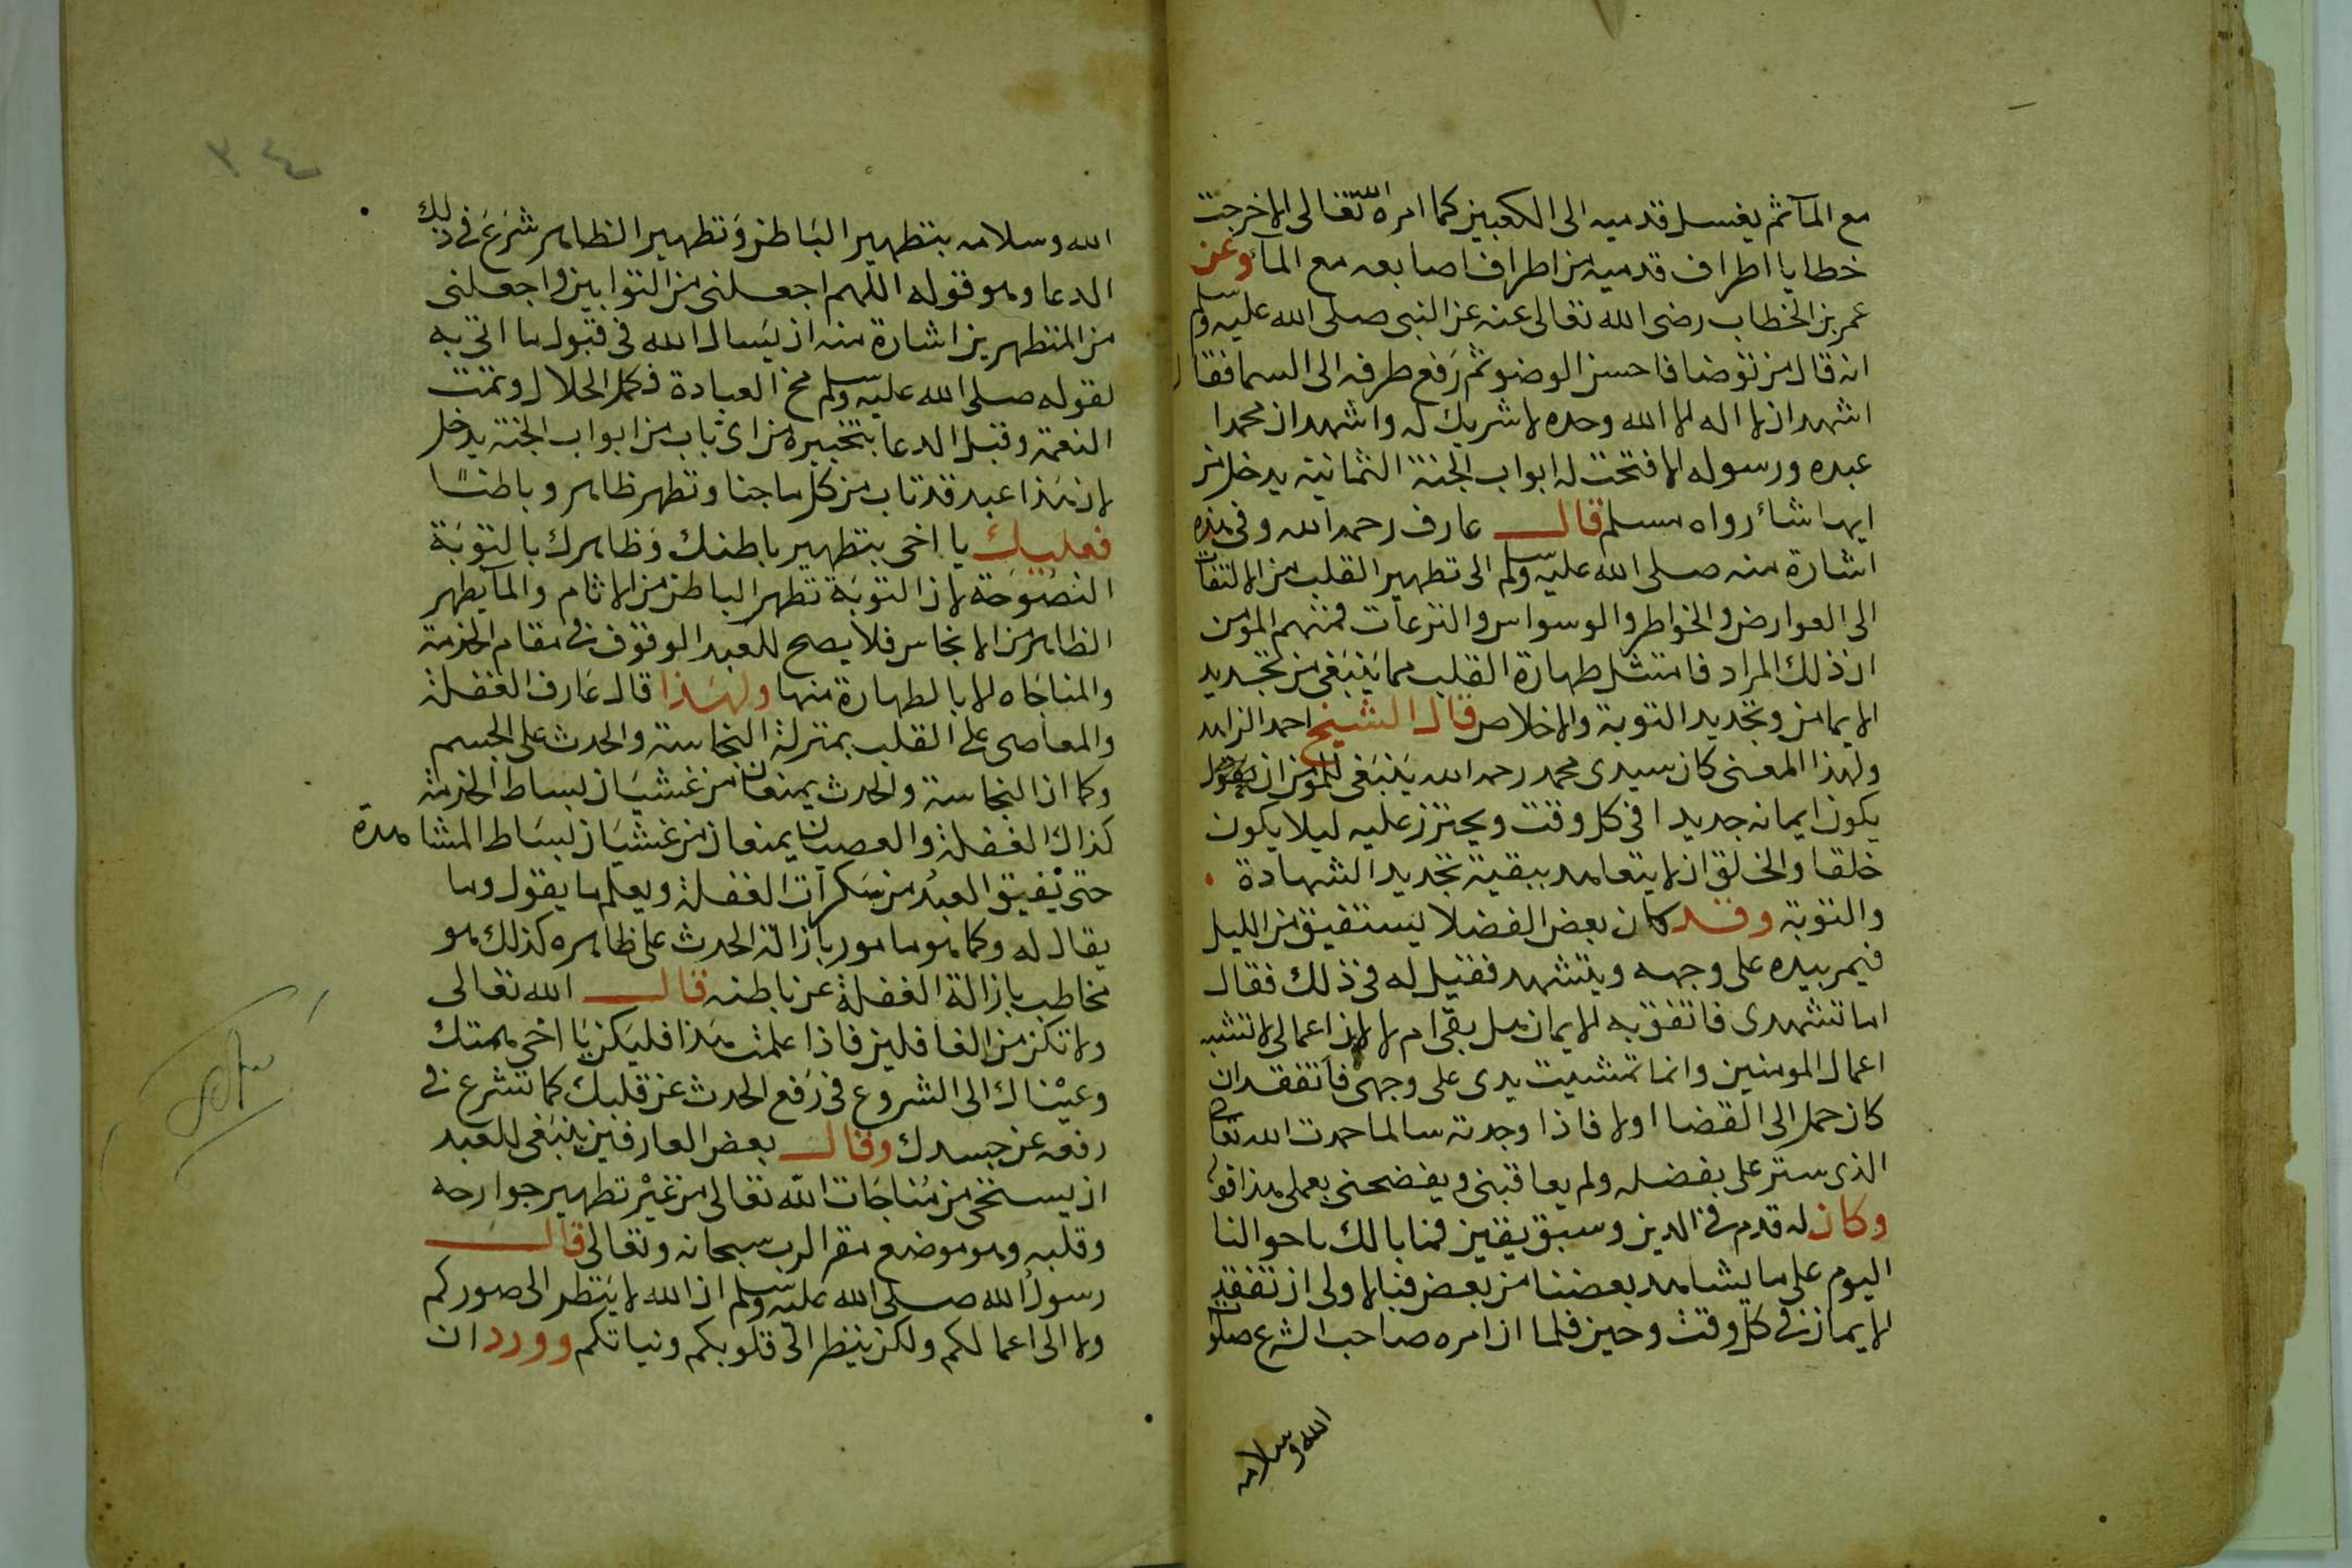 مع المآثم يغسل قدميه الى الكعبين كما امره الله تعالى الا خرجت
خطايا اطراف قدميه من اطراف اصابعه مع الماء وعن
عمر بن الخطاب رضى الله تعالى عنه عن النبى صلى الله عليه وسلم
انه قال من توضا فاحسن الوضو ثم رفع طرفه الى السما فقال
اشهد ان لا اله الا الله وحده لا شريك له واشهد ان محمدا
عبده ورسوله الا فتحت له ابواب الجنة الثمانية يدخل من
ايها شاء رواه مسلم قال عارف رحمه الله وفى هذه
اشارة منه صلى الله عليه وسلم الى تطهير القلب من الالتفات
الى العوارض والخواطر والوسواس والنزعات فمنهم المؤمن
ان ذلك المراد فامتثل طهارة القلب مما ينبغى من تجديد
الايمان وتجديد التوبة والاخلاص قال الشيخ احمد الزاهد
ولهذا المعنى كان سيدى محمد رحمه الله ينبغى للمؤمن ان
يكون ايمانه جديدا فى كل وقت ويحترز عليه ليلا يكون
خلقا والخلق ان لا يتعاهد ببقية تجديد الشهادة
والتوبة وقد كان بعض الفضلا يستفيق من الليل
فيمر بيده على وجهه ويتشهد فقيل له فى ذلك فقال
اما تشهدى فاتفق به الايمان هل بقى ام لا لان اعمالى لا تشبه
اعمال المومنين وانما تمشيت يدى على وجهى فاتفقد ان
كان حمل الى القضا اولا فاذا وجدته سالما حمدت الله تعالى
الذى ستر على بفضله ولم يعاقبنى ويفضحنى بعملى هذا قول
وكان له قدم فى الدين وسبق يقين فما بالك باحوالنا
اليوم على ما يشاهد بعضنا من بعض فبالاولى ان تفقد
الايمان فى كل وقت وحين فلما ان امره صاحب الشرع صلوات
الله وسلامه
٣٤
الله وسلامه بتطهير الباطن وتطهير الظاهر شرع فى ذلك
الدعا وهو قوله اللهم اجعلنى من التوابين واجعلنى
من المتطهرين اشارة منه ان يسال الله فى قبول ما اتى به
لقوله صلى الله عليه وسلم مخ العبادة فكمل الحلال وتمت
النعمة وقبل الدعا بتخييره من اى باب من ابواب الجنة يدخل
لان هذا عبد قد تاب من كل ما جنا وتطهر ظاهر وباطنا
فعليك يا اخى بتطهير باطنك وظاهرك بالتوبة
النصوحة لان التوبة تطهر الباطن من الاثام والمآ يطهر
الظاهر من الانجاس فلا يصح للعبد الوقوف فى مقام الخدمة
والمناجاه الا بالطهارة منها ولهذا قال عارف الغفلة
والمعاصى على القلب بمنزلة النجاسة والحدث على الجسم
وكما ان النجاسة والحدث يمنعان من غشيان بساط الخدمة
كذاك الغفلة والعصيان يمنعان من غشيان بساط المشاهدة
حتى يفيق العبد من سكرات الغفلة ويعلم ما يقول وما
يقال له وكما هو مامور بازالة الحدث على ظاهره كذلك هو
مخاطب بازالة الغفلة عن باطنه قال الله تعالى
ولا تكن من الغافلين فاذا علمت هذا فليكن يا اخى همتك
وعيناك الى الشروع فى رفع الحدث عن قلبك كما تشرع فى
رفعه عن جسدك وقال بعض العارفين ينبغى للعبد
ان يستحى من مناجات الله تعالى من غير تطهير جوارحه
وقلبه وهو موضع مقر الرب سبحانه وتعالى قال
رسول الله صلى الله عليه وسلم ان الله لا ينظر الى صوركم
ولا الى اعمالكم ولكن ينظر الى قلوبكم ونياتكم وورد ان